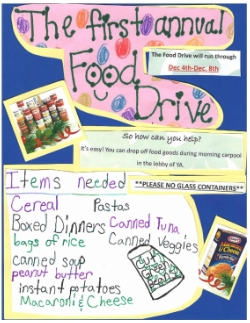 The first annual
Food
Drive
The Food Drive will run through
Dec 4th-Dec. 8th
So how can you help?
It's easy! You can drop off food goods during morning carpool
in the lobby of YA.
Items needed
**PLEASE NO GLASS CONTAINERS**
Cereal Pastas
Boxed Dinners Canned Tuna
bags of rice Canned Veggies
canned soup
peanut butter
instant potatoes
Macaroni & Cheese